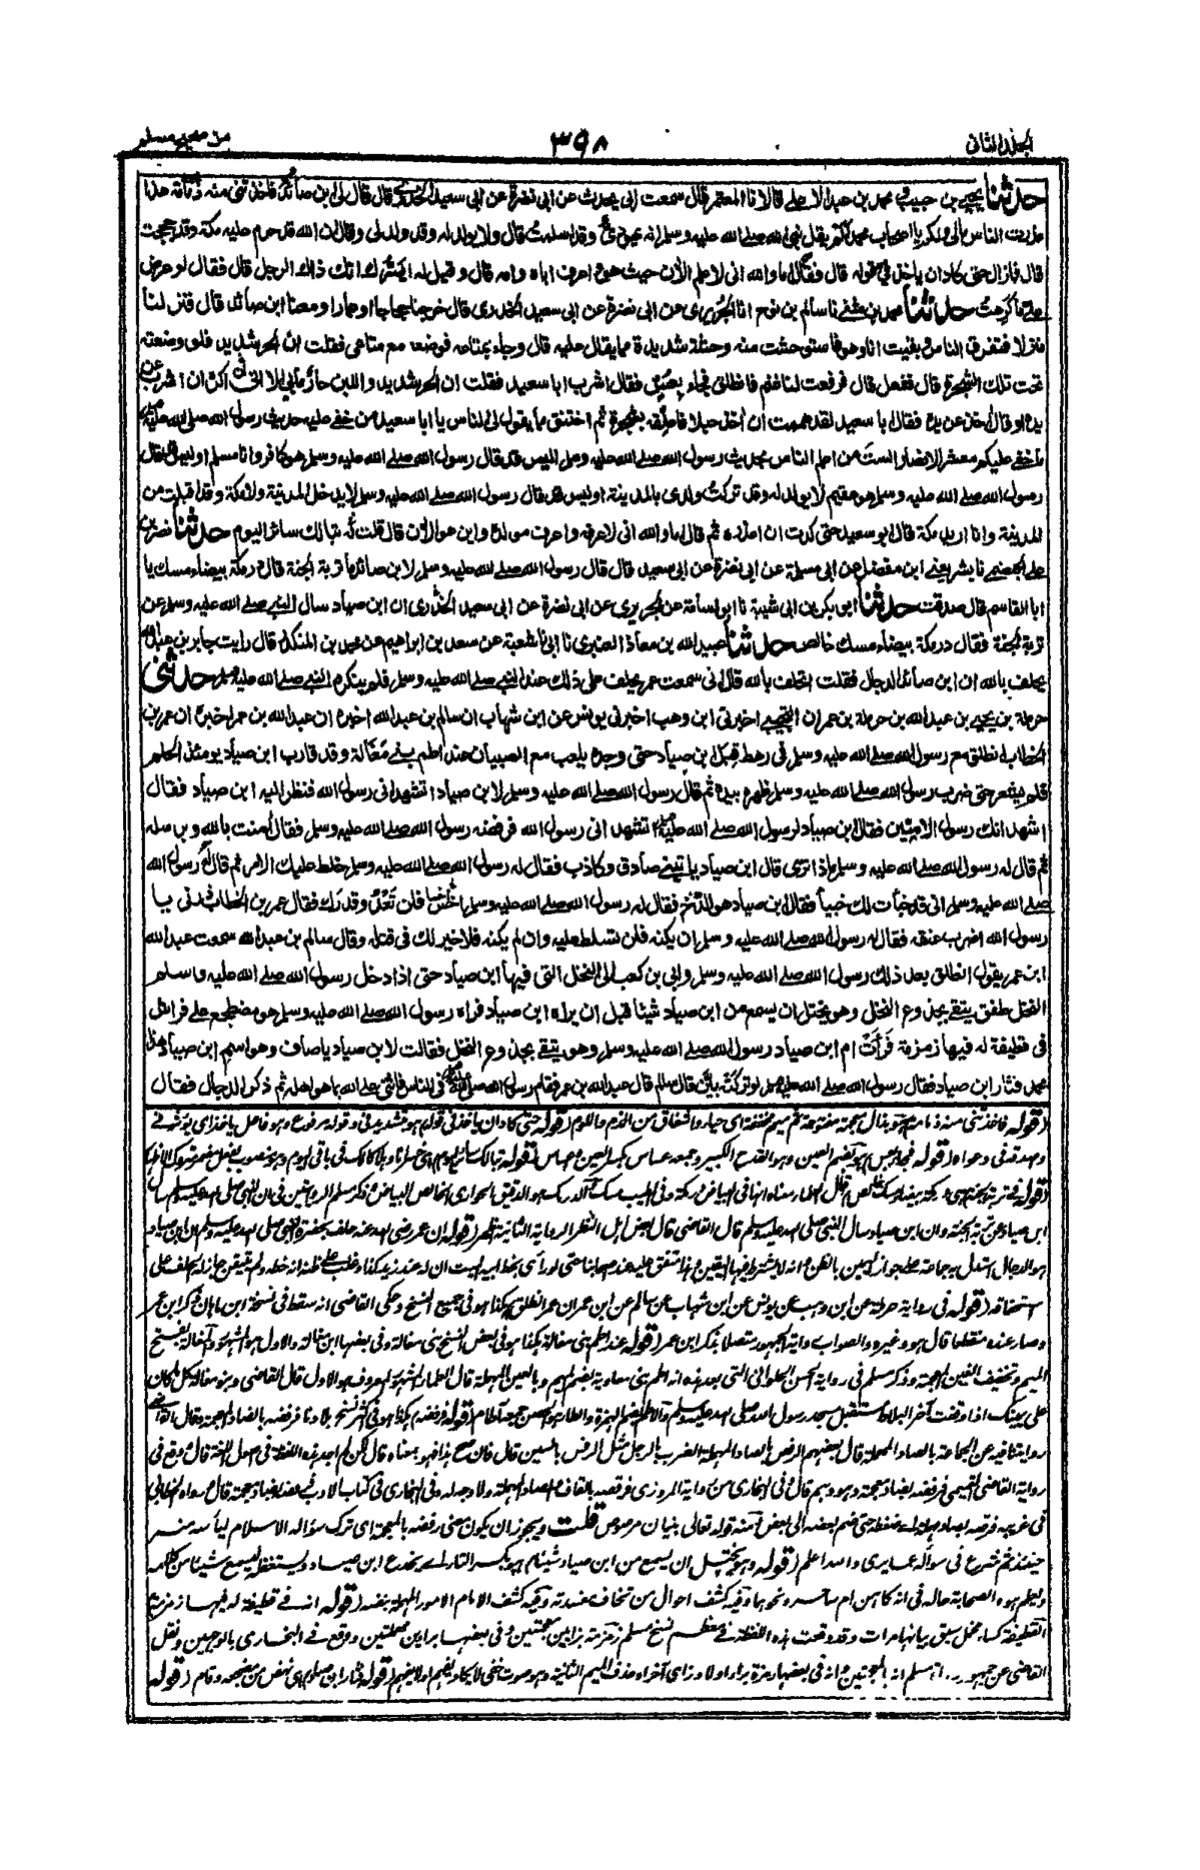 الجلد الثانى
٣٩٨
من صحيح مسلم
حدثنا يحيى بن حبيب ومحمد بن عبد الاعلى قالا نا المعتمر قال سمعت ابى يحدث عن ابى نضرة عن ابى سعيد الخدرى قال قال لى ابن صائد فاخذتنى منه ذمامة هذا
عذرت الناس مالى ولكم يا اصحاب محمد الم يقل نبى الله صلى الله عليه وسلم انه يهودى وقد اسلمت قال ولا يولد له وقد ولد لى وقال ان الله قد حرم عليه مكة وقد حججت
قال فما زال حتى كاد ان ياخذ فى قوله قال فقال اما والله انى لاعلم الآن حيث هو واعرف اباه وامه قال وقيل له ايسرك انك ذاك الرجل قال فقال لو عرض
على ما كرهت حدثنا محمد بن مثنى نا سالم بن نوح انا الجريرى عن ابى نضرة عن ابى سعيد الخدرى قال خرجنا حجاجا او عمارا ومعنا ابن صائد قال فنزلنا
منزلا فتفرق الناس وبقيت انا وهو فاستوحشت منه وحشة شديدة مما يقال عليه قال وجاء بمتاعه فوضعه مع متاعى فقلت ان الحر شديد فلو وضعته
تحت تلك الشجرة قال ففعل قال فرفعت لنا غنم فانطلق فجاء بعس فقال اشرب ابا سعيد فقلت ان الحر شديد واللبن حار ما بى الا انى اكره ان اشرب عن
يده او قال اخذ عن يده فقال ابا سعيد لقد هممت ان اخذ حبلا فاعلقه بشجرة ثم اختنق مما يقول لى الناس يا ابا سعيد من خفى عليه حديث رسول الله صلى الله عليه وسلم
ما خفى عليكم معشر الانصار الست من اعلم الناس بحديث رسول الله صلى الله عليه وسلم اليس قد قال رسول الله صلى الله عليه وسلم هو كافر وانا مسلم اوليس قد قال
رسول الله صلى الله عليه وسلم هو عقيم لا يولد له وقد تركت ولدى بالمدينة اوليس قد قال رسول الله صلى الله عليه وسلم لا يدخل المدينة ولا مكة وقد اقبلت من
المدينة وانا اريد مكة قال ابو سعيد حتى كدت ان اعذره ثم قال اما والله انى لاعرفه واعرف مولده واين هو الآن قال قلت له تبا لك سائر اليوم حدثنا نصر بن
على الجهضمى نا بشر يعنى ابن مفضل عن ابى مسلمة عن ابى نضرة عن ابى سعيد قال قال رسول الله صلى الله عليه وسلم لابن صائد ما تربة الجنة قال درمكة بيضاء مسك يا
ابا القاسم قال صدقت حدثنا ابو بكر بن ابى شيبة نا ابو اسامة عن الجريرى عن ابى نضرة عن ابى سعيد الخدرى ان ابن صياد سال النبى صلى الله عليه وسلم عن
تربة الجنة فقال درمكة بيضاء مسك خالص حدثنا عبيد الله بن معاذ العنبرى نا ابى نا شعبة عن سعد بن ابراهيم عن محمد بن المنكدر قال رايت جابر بن عبد الله
يحلف بالله ان ابن صائد الدجال فقلت اتحلف بالله قال انى سمعت عمر يحلف على ذلك عند النبى صلى الله عليه وسلم فلم ينكره النبى صلى الله عليه وسلم حدثنى
حرملة بن يحيى بن عبد الله بن حرملة بن عمران التجيبى اخبرنى ابن وهب اخبرنى يونس عن ابن شهاب ان سالم بن عبد الله اخبره ان عبد الله بن عمر اخبره ان عمر بن
الخطاب انطلق مع رسول الله صلى الله عليه وسلم فى رهط قبل ابن صياد حتى وجده يلعب مع الصبيان عند اطم بنى مغالة وقد قارب ابن صياد يومئذ الحلم
فلم يشعر حتى ضرب رسول الله صلى الله عليه وسلم ظهره بيده ثم قال رسول الله صلى الله عليه وسلم لابن صياد اتشهد انى رسول الله فنظر اليه ابن صياد فقال
اشهد انك رسول الاميين فقال ابن صياد لرسول الله صلى الله عليه وسلم اتشهد انى رسول الله فرفضه رسول الله صلى الله عليه وسلم فقال آمنت بالله وبرسله
ثم قال له رسول الله صلى الله عليه وسلم ماذا ترى قال ابن صياد ياتينى صادق وكاذب فقال له رسول الله صلى الله عليه وسلم خلط عليك الامر ثم قال له رسول الله
صلى الله عليه وسلم انى قد خبأت لك خبيأ فقال ابن صياد هو الدخ فقال له رسول الله صلى الله عليه وسلم اخسأ فلن تعدو قدرك فقال عمر بن الخطاب ذرنى يا
رسول الله اضرب عنقه فقال له رسول الله صلى الله عليه وسلم ان يكنه فلن تسلط عليه وان لم يكنه فلا خير لك فى قتله وقال سالم بن عبد الله سمعت عبد الله
ابن عمر يقول انطلق بعد ذلك رسول الله صلى الله عليه وسلم وابى بن كعب الى النخل التى فيها ابن صياد حتى اذا دخل رسول الله صلى الله عليه وسلم
النخل طفق يتقى بجذوع النخل وهو يختل ان يسمع من ابن صياد شيئا قبل ان يراه ابن صياد فراه رسول الله صلى الله عليه وسلم وهو مضطجع على فراش
فى قطيفة له فيها زمزمة فرأت ام ابن صياد رسول الله صلى الله عليه وسلم وهو يتقى بجذوع النخل فقالت لابن صياد يا صاف وهو اسم ابن صياد هذا
محمد فثار ابن صياد فقال رسول الله صلى الله عليه وسلم لو تركته بين قال سالم قال عبد الله بن عمر فقام رسول الله صلى الله عليه وسلم فى الناس فاثنى على الله بما هو اهله ثم ذكر الدجال فقال
(قوله فاخذتنى منه ذمامة) هو بذال معجمة مفتوحة ثم ميم مخففة اى حياء واشفاق من الذم واللوم (قوله حتى كاد ان ياخذ فى قوله) هو بتشديد فى وقوله مرفوع وهو فاعل ياخذ اى يؤثر فى
واصدقه فى دعواه (قوله فجاء بعس) هو بضم العين وهو القدح الكبير وجمعه عساس بكسر العين واعساس (قوله تبا لك سائر اليوم) اى خسرانا وهلاكا لك فى باقى اليوم وهو منصوب بفعل مضمر متروك الاظهار
(قوله فى تربة الجنة هى درمكة بيضاء مسك خالص) قال العلماء معناه انها فى البياض درمكة وفى الطيب مسك والدرمك هو الدقيق الحوارى الخالص البياض وذكر مسلم الروايتين فى ان النبى صلى الله عليه وسلم سال
ابن صياد عن تربة الجنة وان ابن صياد سال النبى صلى الله عليه وسلم قال القاضى قال بعض اهل النظر الرواية الثانية اظهر (قوله ان عمر رضى الله عنه حلف بحضرة النبى صلى الله عليه وسلم ان ابن صياد
هو الدجال) استدل به جماعة على جواز اليمين بالظن وانه لا يشترط فيها اليقين وهذا متفق عليه عند اصحابنا حتى لو رأى بخط ابيه الميت ان له عند زيد كذا وغلب على ظنه انه خطه ولم يتيقن جاز له الحلف على
استحقاقه (قوله فى رواية حرملة عن ابن وهب عن يونس عن ابن شهاب عن سالم عن ابن عمر ان عمر انطلق) هكذا هو فى جميع النسخ وحكى القاضى انه سقط فى نسخة ابن ماهان ذكر ابن عمر
وصار عنده منقطعا قال هو وغيره والصواب رواية الجمهور متصلا بذكر ابن عمر (قوله عند اطم بنى مغالة) هكذا هو فى بعض النسخ بنى مغالة وفى بعضها ابن مغالة والاول هو المشهور والمغالة بفتح
الميم وتخفيف الغين المعجمة وذكر مسلم فى رواية الحسن الحلوانى التى بعد هذه انه اطم بنى معاوية بضم الميم وبالعين المهملة قال العلماء المشهور المعروف هو الاول قال القاضى وبنو مغالة كل ما كان
على يمينك اذا وقفت آخر البلاط مستقبل مسجد رسول الله صلى الله عليه وسلم والاطم بضم الهمزة والطاء هو الحصن جمعه آطام (قوله فرفضه) هكذا هو فى اكثر نسخ بلادنا فرفضه بالضاد المعجمة وقال القاضى
روايتنا فيه عن الجماعة بالصاد المهملة قال بعضهم الرفص بالصاد المهملة الضرب بالرجل مثل الرفس بالسين قال فان صح هذا فهو بمعناه قال لكن لم اجد هذه اللفظة فى اصول اللغة قال ووقع فى
رواية القاضى التميمى فرفضه بضاد معجمة وهو وهم قال وفى البخارى من رواية المروزى فرقصه بالقاف والصاد المهملة ولا وجه له وفى البخارى فى كتاب الادب فرضه بضاد معجمة قال ورواه الخطابى
فى غريبه فرصه بصاد مهملة اى ضغطه حتى ضم بعضه الى بعض ومنه قوله تعالى بنيان مرصوص قلت ويجوز ان يكون معنى رفضه بالمعجمة اى ترك سؤاله الاسلام ليأسه منه
حينئذ ثم شرع فى سؤاله عما يرى والله اعلم (قوله وهو يختل ان يسمع من ابن صياد شيئا) هو بكسر التاء اى يخدع ابن صياد ويستغفله ليسمع شيئا من كلامه
ويعلم هو والصحابة حاله فى انه كاهن ام ساحر ونحوهما وفيه كشف احوال من تخاف مفسدته وفيه كشف الامام الامور المهمة بنفسه (قوله انه فى قطيفة له فيها زمزمة)
القطيفة كساء مخمل سبق بيانها مرات وقد وقعت هذه اللفظة فى معظم نسخ مسلم زمزمة بزايين معجمتين وفى بعضها براين مهملتين ووقع فى البخارى بالوجهين ونقل
القاضى عن جمهور رواة مسلم انه بالمعجمتين وانه فى بعضها رمزة براء اولا وزاى آخرا وحذف الميم الثانية وهو صوت خفى لا يكاد يفهم او لا يفهم (قوله فثار ابن صياد) اى نهض من مضجعه وقام (قوله